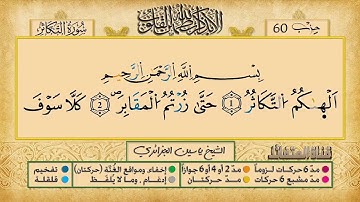 سُورَةُ التَّكَاثُرِ
أَلَا بِذِكْرِ اللَّهِ تَطْمَئِنُّ الْقُلُوبُ
حزب 60
بِسْمِ اللَّهِ الرَّحْمَنِ الرَّحِيمِ
أَلْهَىٰكُمُ التَّكَاثُرُ 1 حَتَّىٰ زُرْتُمُ الْمَقَابِرَ 2 كَلَّا سَوْفَ
الشيخ ياسين الجزائري
مدّ 6 حركات لزوماً مدّ 2 أو 4 أو 6 جوازاً إخفاء، ومواقع الغُنَّة (حركتان) تفخيم
مدّ مشبع 6 حركات مدّ حركتان إدغام، وما لا يُلفَظ قلقلة